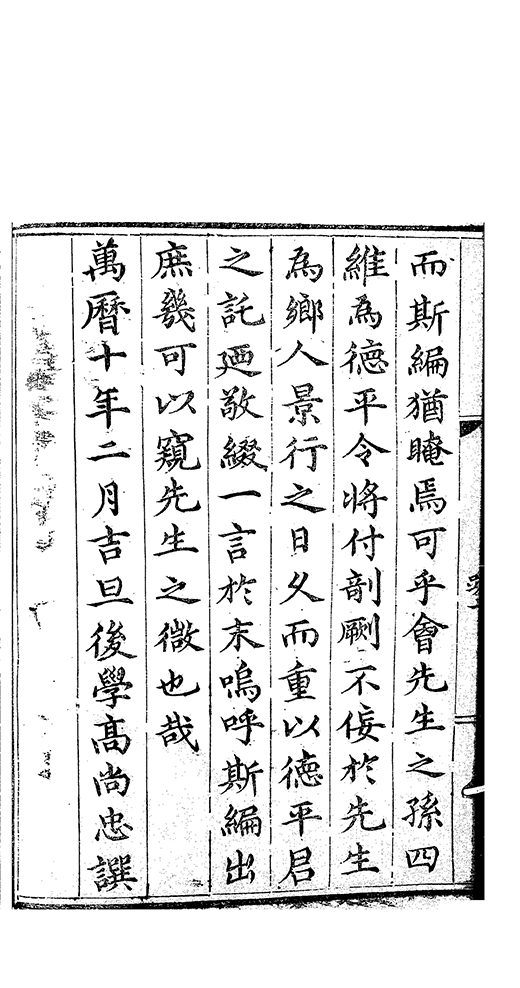 而斯編猶晻焉可乎會先生之孫四
維為德平令將付剞劂不侫於先生
為鄉人景行之日乆而重以德平君
之託廼敬綴一言於末嗚呼斯編出
庶幾可以窺先生之微也哉
萬曆十年二月吉旦後學高尚忠譔